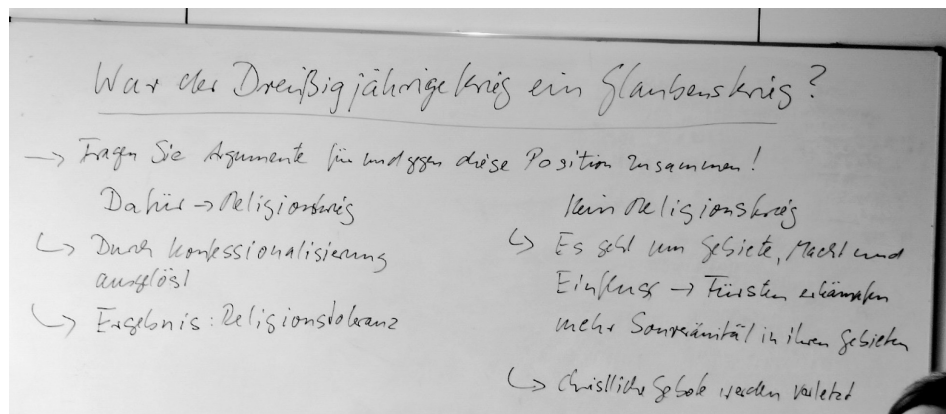 War der Dreißigjährige Krieg ein Glaubenskrieg?
→ Tragen Sie Argumente für und gegen diese Position zusammen!
Dafür → Religionskrieg
↳ Durch Konfessionalisierung
ausgelöst
↳ Ergebnis: Religionstoleranz
Kein Religionskrieg
↳ Es geht um Gebiete, Macht und
Einfluss → Fürsten erkämpfen
mehr Souveränität in ihren Gebieten
↳ Christliche Gebote werden verletzt